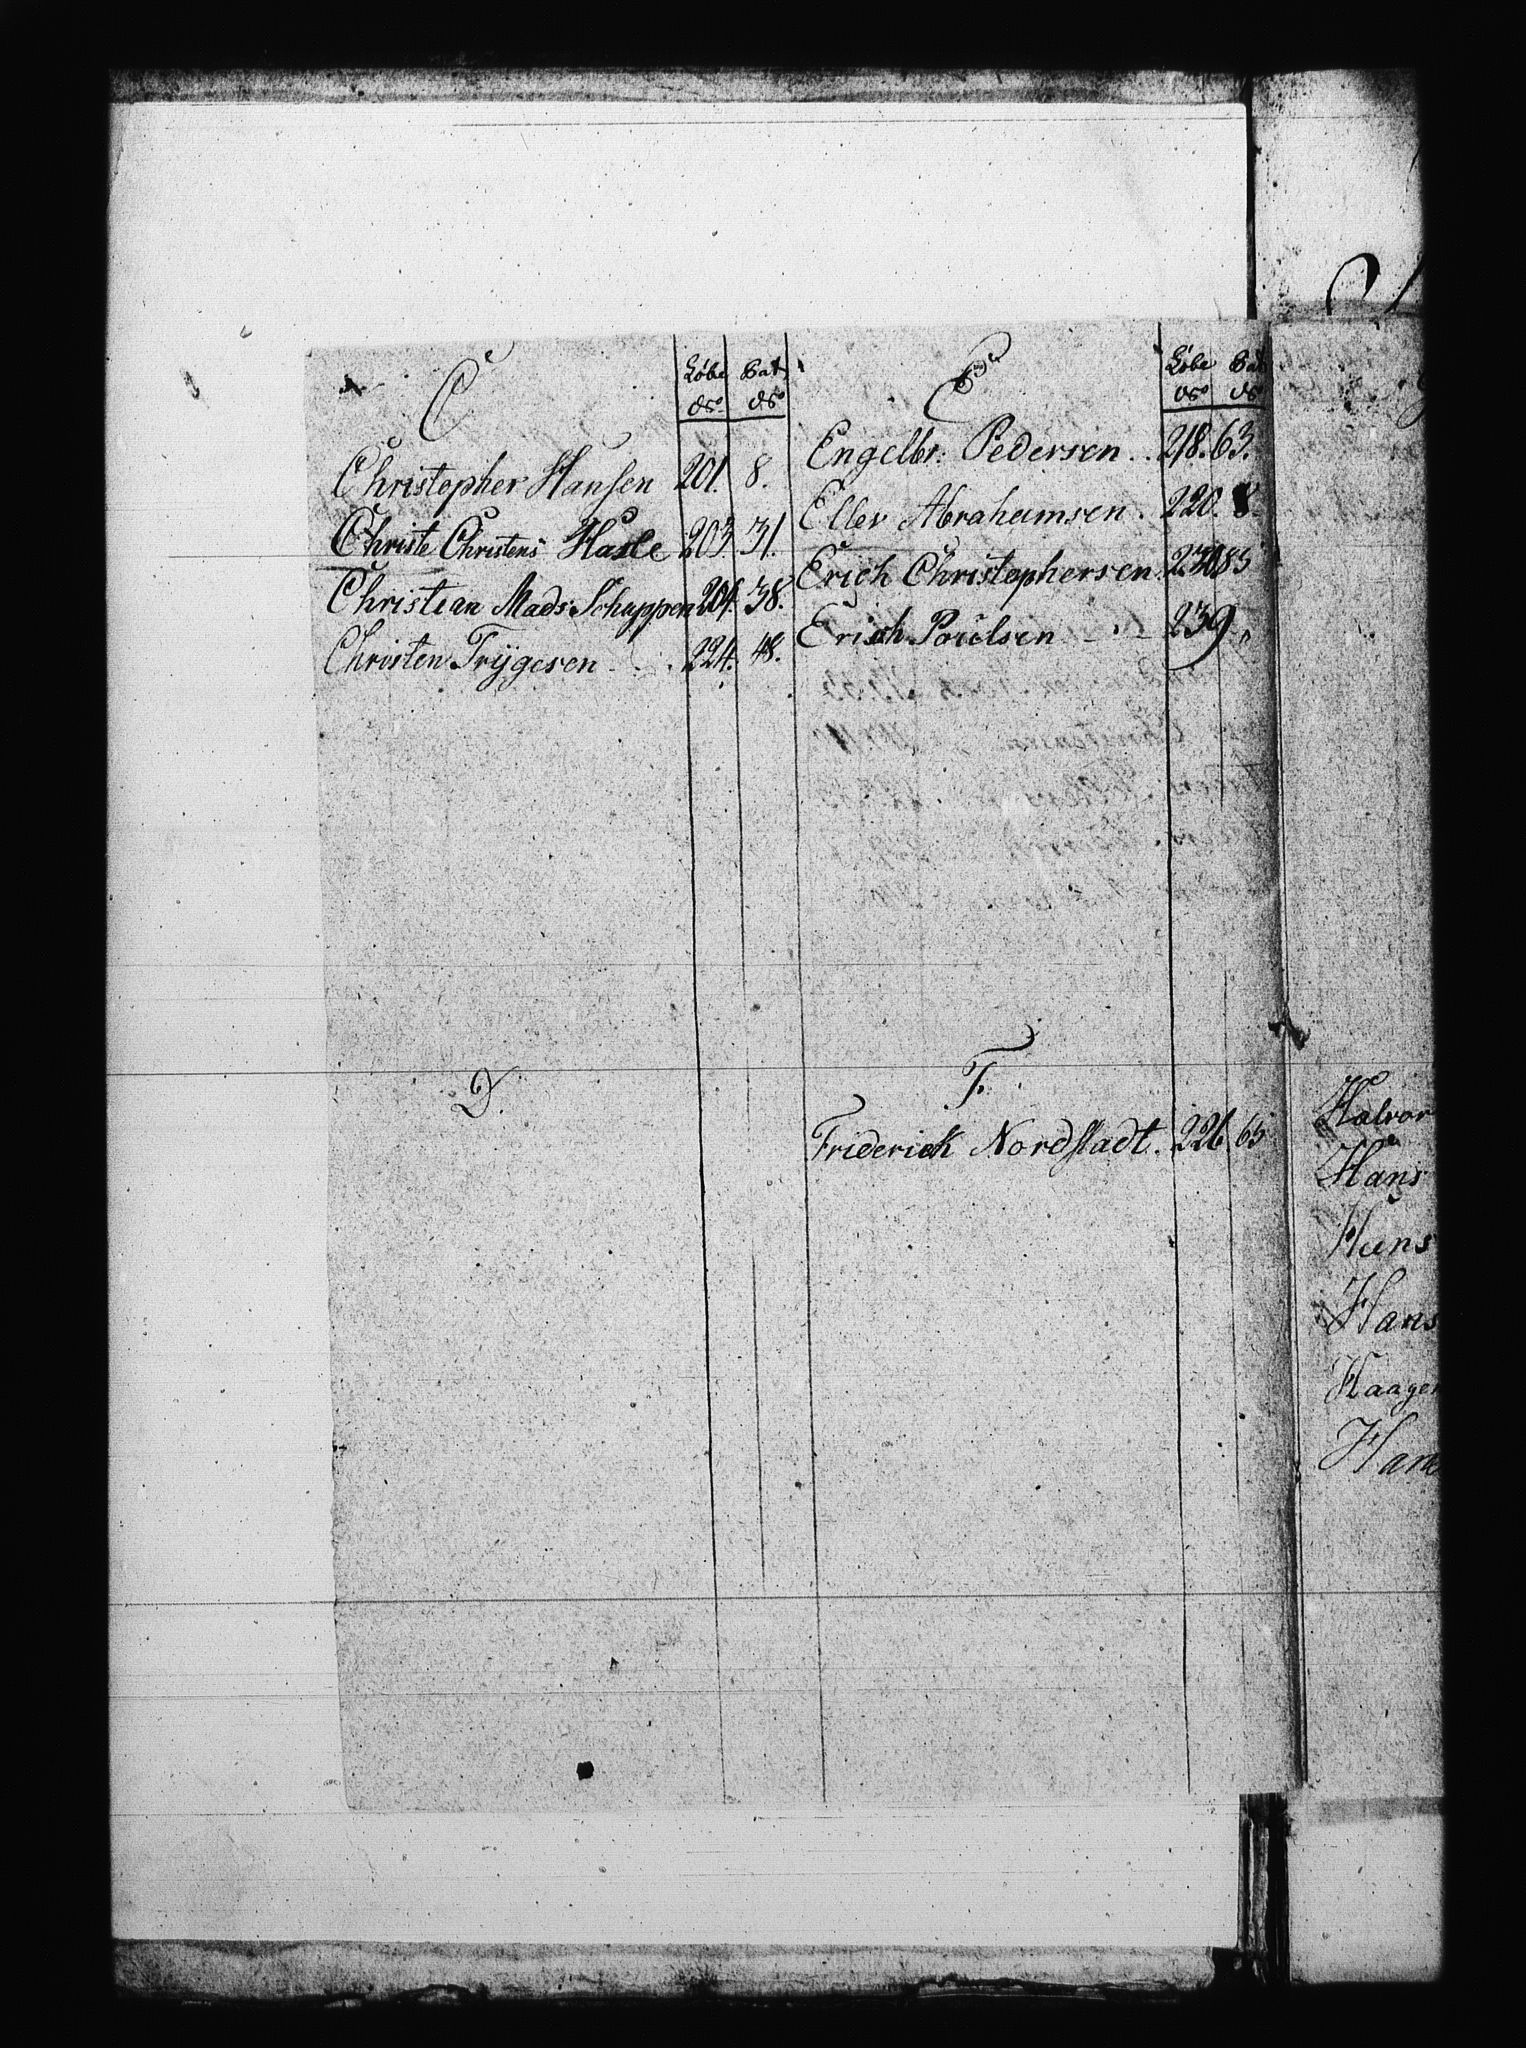 C
Løbe Bat
No No
Christopher Hansen 201. 8.
Christe Christens Hasle 203 31.
Christian Mads: Schuppen 204. 38.
Christen Trÿgesen 224. 48.
D.
E
Løbe Bat
No No
Engelbr: Pedersen 218. 63.
Ellev Abrahamsen 220. 8.
Erich Christophersen 230 85
Erich Poulsen 239 "
F.
Friderick Nordstadt. 226 65
Halvor
Hans
Hans
Hans
Haagen
Hans